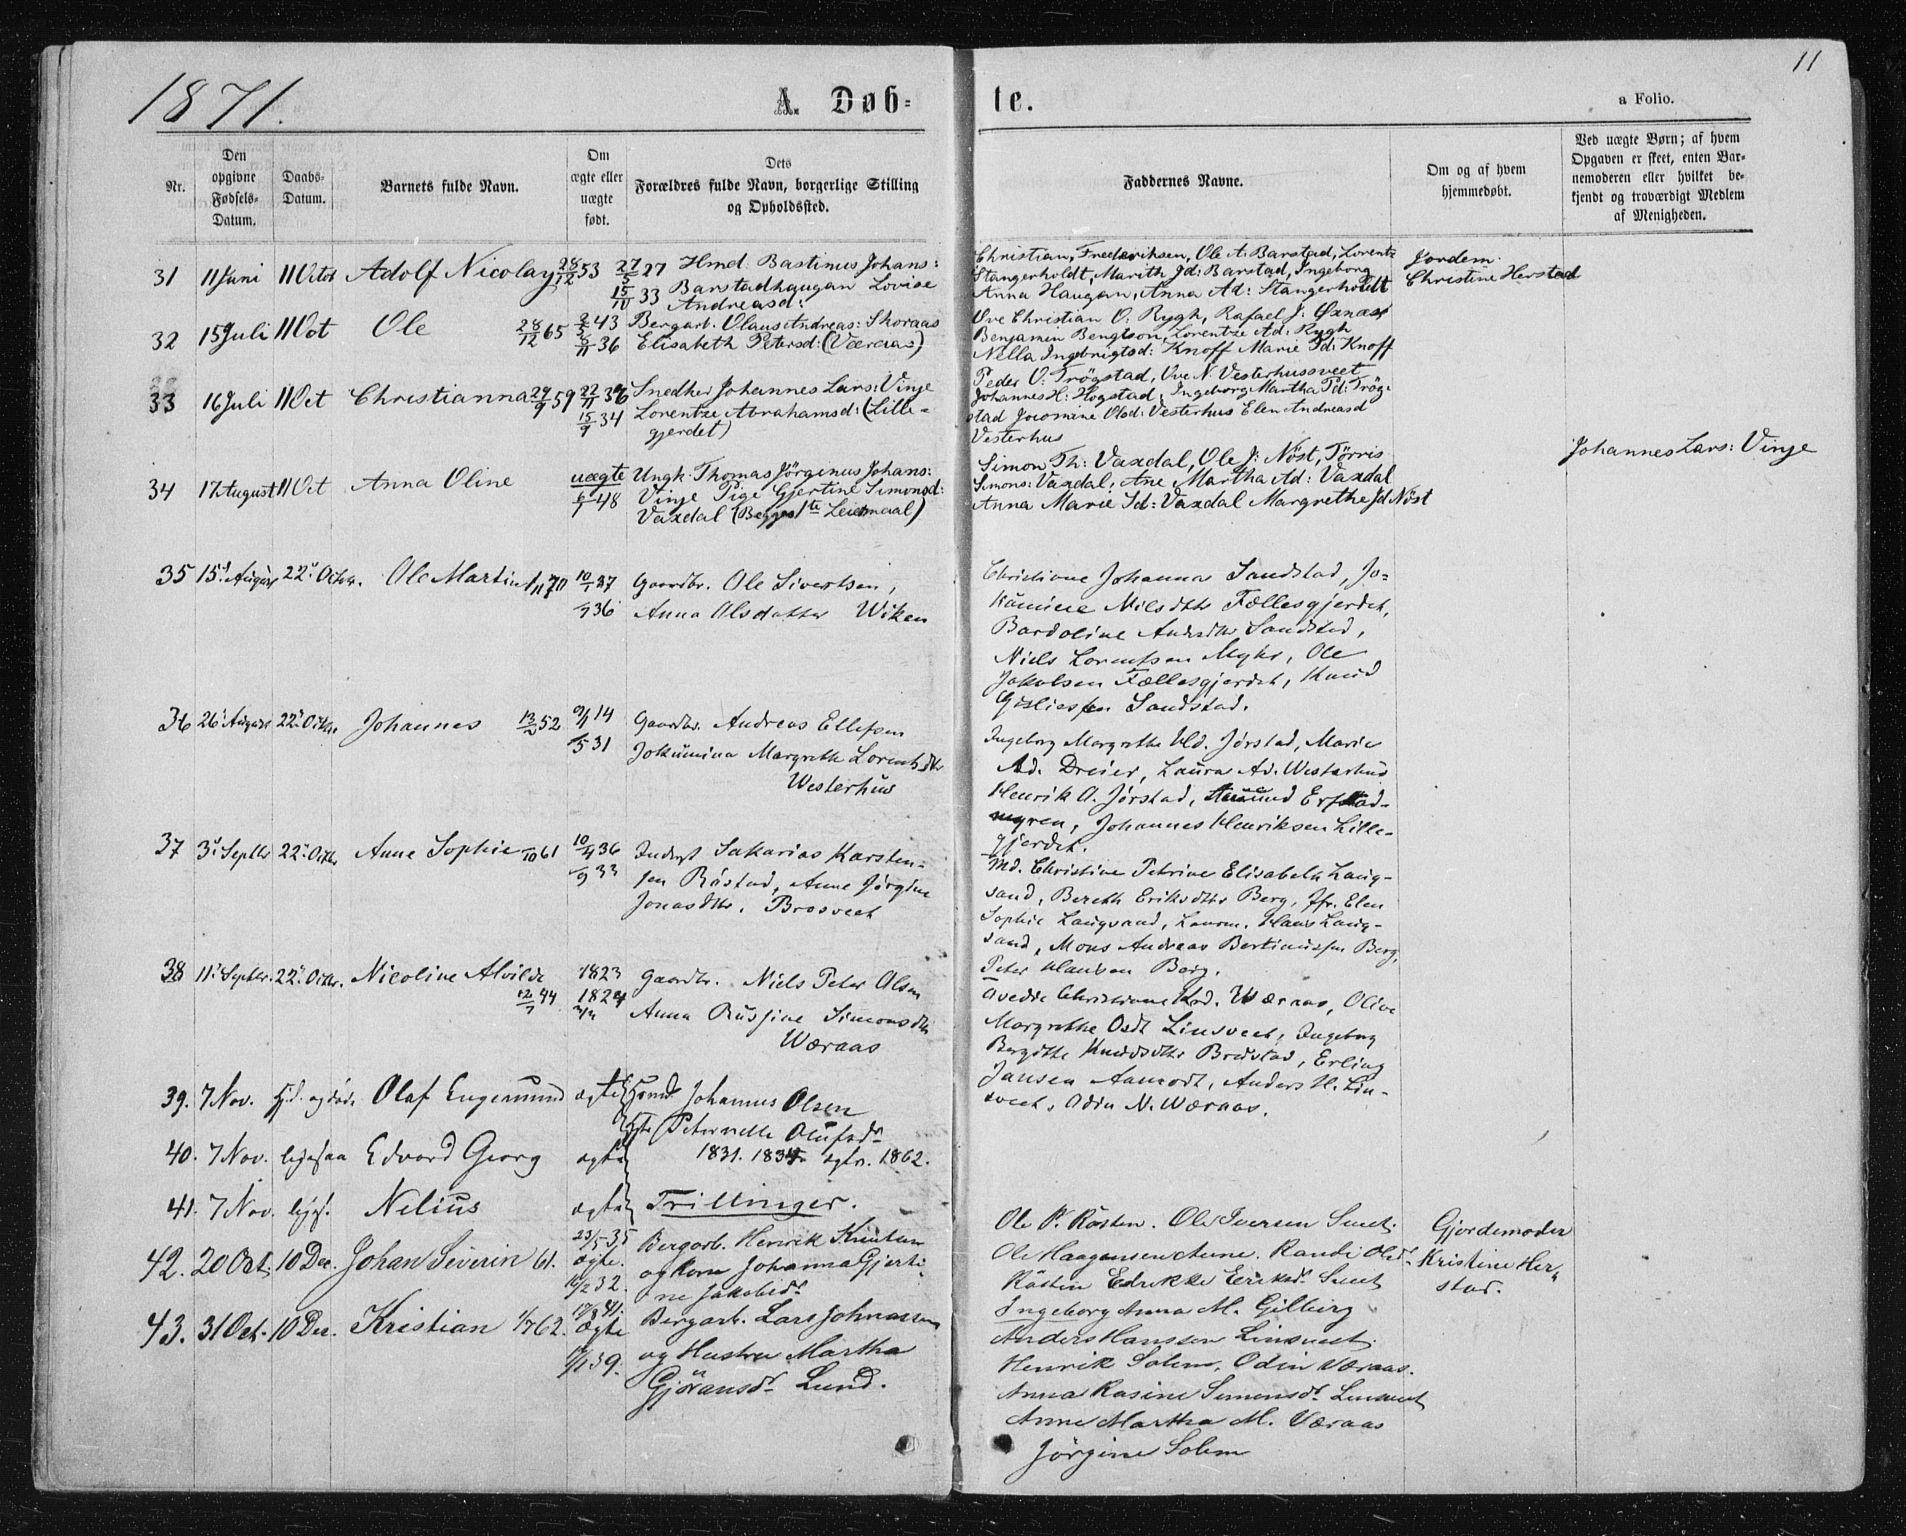 1871.
A. Døb-
te.
11
a Folio.
Nr.
Den
opgivne
Fødsels-
Datum.
Daabs-
Datum.
Barnets fulde Navn.
Om
ægte eller
uægte
født.
Dets
Forældres fulde Navn, borgerlige Stilling
og Opholdssted.
Faddernes Navne.
Om og af hvem
hjemmedøbt.
Ved uægte Børn; af hvem
Opgaven er skeet, enten Bar-
nemoderen eller hvilket be-
kjendt og troværdigt Medlem
af Menigheden.
31 11 Juni 11 Octob Adolf Nicolay 28/12 53 27/5 27 Hmd. Bastinus Johans:
15/10 33 Barstadhaugan Lovise
Andreasd:
Christian, Frederiksen, Ole A. Barstad, Lorentz
Stangerholdt, Marith Jd: Barstad, Ingeborg
Anna Haugan, Anna Ad: Stangerholdt
Jordem.
Christine Herstad
32 15 Juli 11 Oct Ole 28/12 65 43 Bergarb. Olaus Andreas: Skoraas
36 Elisabeth Petersd: (Væraas)
Ove Christian O: Rygh, Rafael J: Øxnæs
Benjamin Bengtson, Lorentze Ad: Rygh
Nella Ingebrigtsd: Knoff Marie Pd: Knoff
33 16 Juli 11 Oct Christianna 29/9 59 22/11 36 Snedker Johannes Lars: Vinje
15/9 34 Lorentze Abrahamsd: (Lille-
gjerdet)
Peder O: Trøgstad, Ove N. Vesterhussveet
Johannes H: Hogstad, Ingeborg Martha Pd: Trøg-
stad Jocomine Olsd: Vesterhus Elen Andreasd
Vesterhus
34 17 August 11 Oct Anna Oline uægte Ungk: Thomas Jörgenus Johans:
48 Vinje Pige Gjertine Simonsd:
Vaxdal (Begges 1te Leiermaal)
Simon Th: Vaxdal, Ole J: Nöst, Törris
Simons: Vaxdal, Ane Martha Ad: Vaxdal
Anna Marie Sd: Vaxdal Margrethe Jd Nöst
Johannes Lars: Vinje
35 15 August 22 Octbr. Ole Martin 70 10/1 37 Gaardbr. Ole Sivertsen,
36 Anna Olsdatter Wiken
Christiane Johanna Sandstad, Jo-
kumine Nilsdtr Fællesgjerdet,
Bardoline Andrsdtr Sandstad,
Niels Lorentsen Myhr, Ole
Jakobsen Fællesgjerdet, Knud
Sandstad.
36 26 August 22 Octbr Johannes 13/2 52 14 Gaardbr. Andreas Ellefsen
31 Jokumina Margreth Lorentsdtr
Westerhus
Ingeborg Margrethe Old. Jørstad, Marie
Ad. Dreier, Laura Ad. Westerhus
Henrik A. Jørstad,
myren, Johannes Henriksen Lille-
gjerdet.
37 3 Septbr 22 Octbr Anne Sophie 61 10/4 36 Inderst Sakarias Karsten-
33 sen Råstad, Anne Jörgine
Jonasdtr. Brosveet
Md. Christine Petrine Elisabeth Lang-
sand, Bereth Eriksdtr Berg, Jfr. Elen
Sophie Langsand, Hans Lang-
sand, Mons Andreas Bertinussen Berg,
Peter Hansen Berg.
38 11 Septbr. 22 Octbr. Nicoline Alvilde 12/7 44 1823 Gaardbr. Niels Peter Olsen
1824 Anna Simonsdtr
Wæraas
Christiane Wæraas, Oline
Margrethe Osdt Linsveet, Ingeborg
Bergitte Knudsdtr Bredstad, Erling
Jansen Aamodt, Anders H. Lin-
sveet, Odin N. Wæraas.
39. 7 Nov. hjd. og døde Olaf Engemund ægte Johannes Olsen
Peternelle Olufsdr
40. 7 Nov. ligesaa Edvard Georg ægte 1831. 1834. egtv. 1862.
41. 7 Nov. liges. Nelius ægte Trillinger.
42. 20 Oct. 10 Dec. Johan Severin 61. 23/5 35 Bergarb. Henrik Knutsen
ægte. og Kone Johanna Gjerti-
32. ne Jakobsdr
Ole P. Råsten. Ole Iversen Sveet.
Ole Haagensen Aune. Randi Olsdr
Råsten Edrikke Eriksdr Sveet
Ingeborg Anna M. Gilberg
Gjordemoder
Kristine Her-
stad.
43. 31 Oct. 10 Dec. Kristian 62. 41. Bergarb. Lars Johnassen
ægte og Hustru Martha
39. Gjöransdr Lund.
Anders Hanssen Linsveet.
Henrik Solem, Odin Væraas.
Anna Rasine Simonsdr Linsveet
Anne Martha M. Væraas
Jörgine Solem